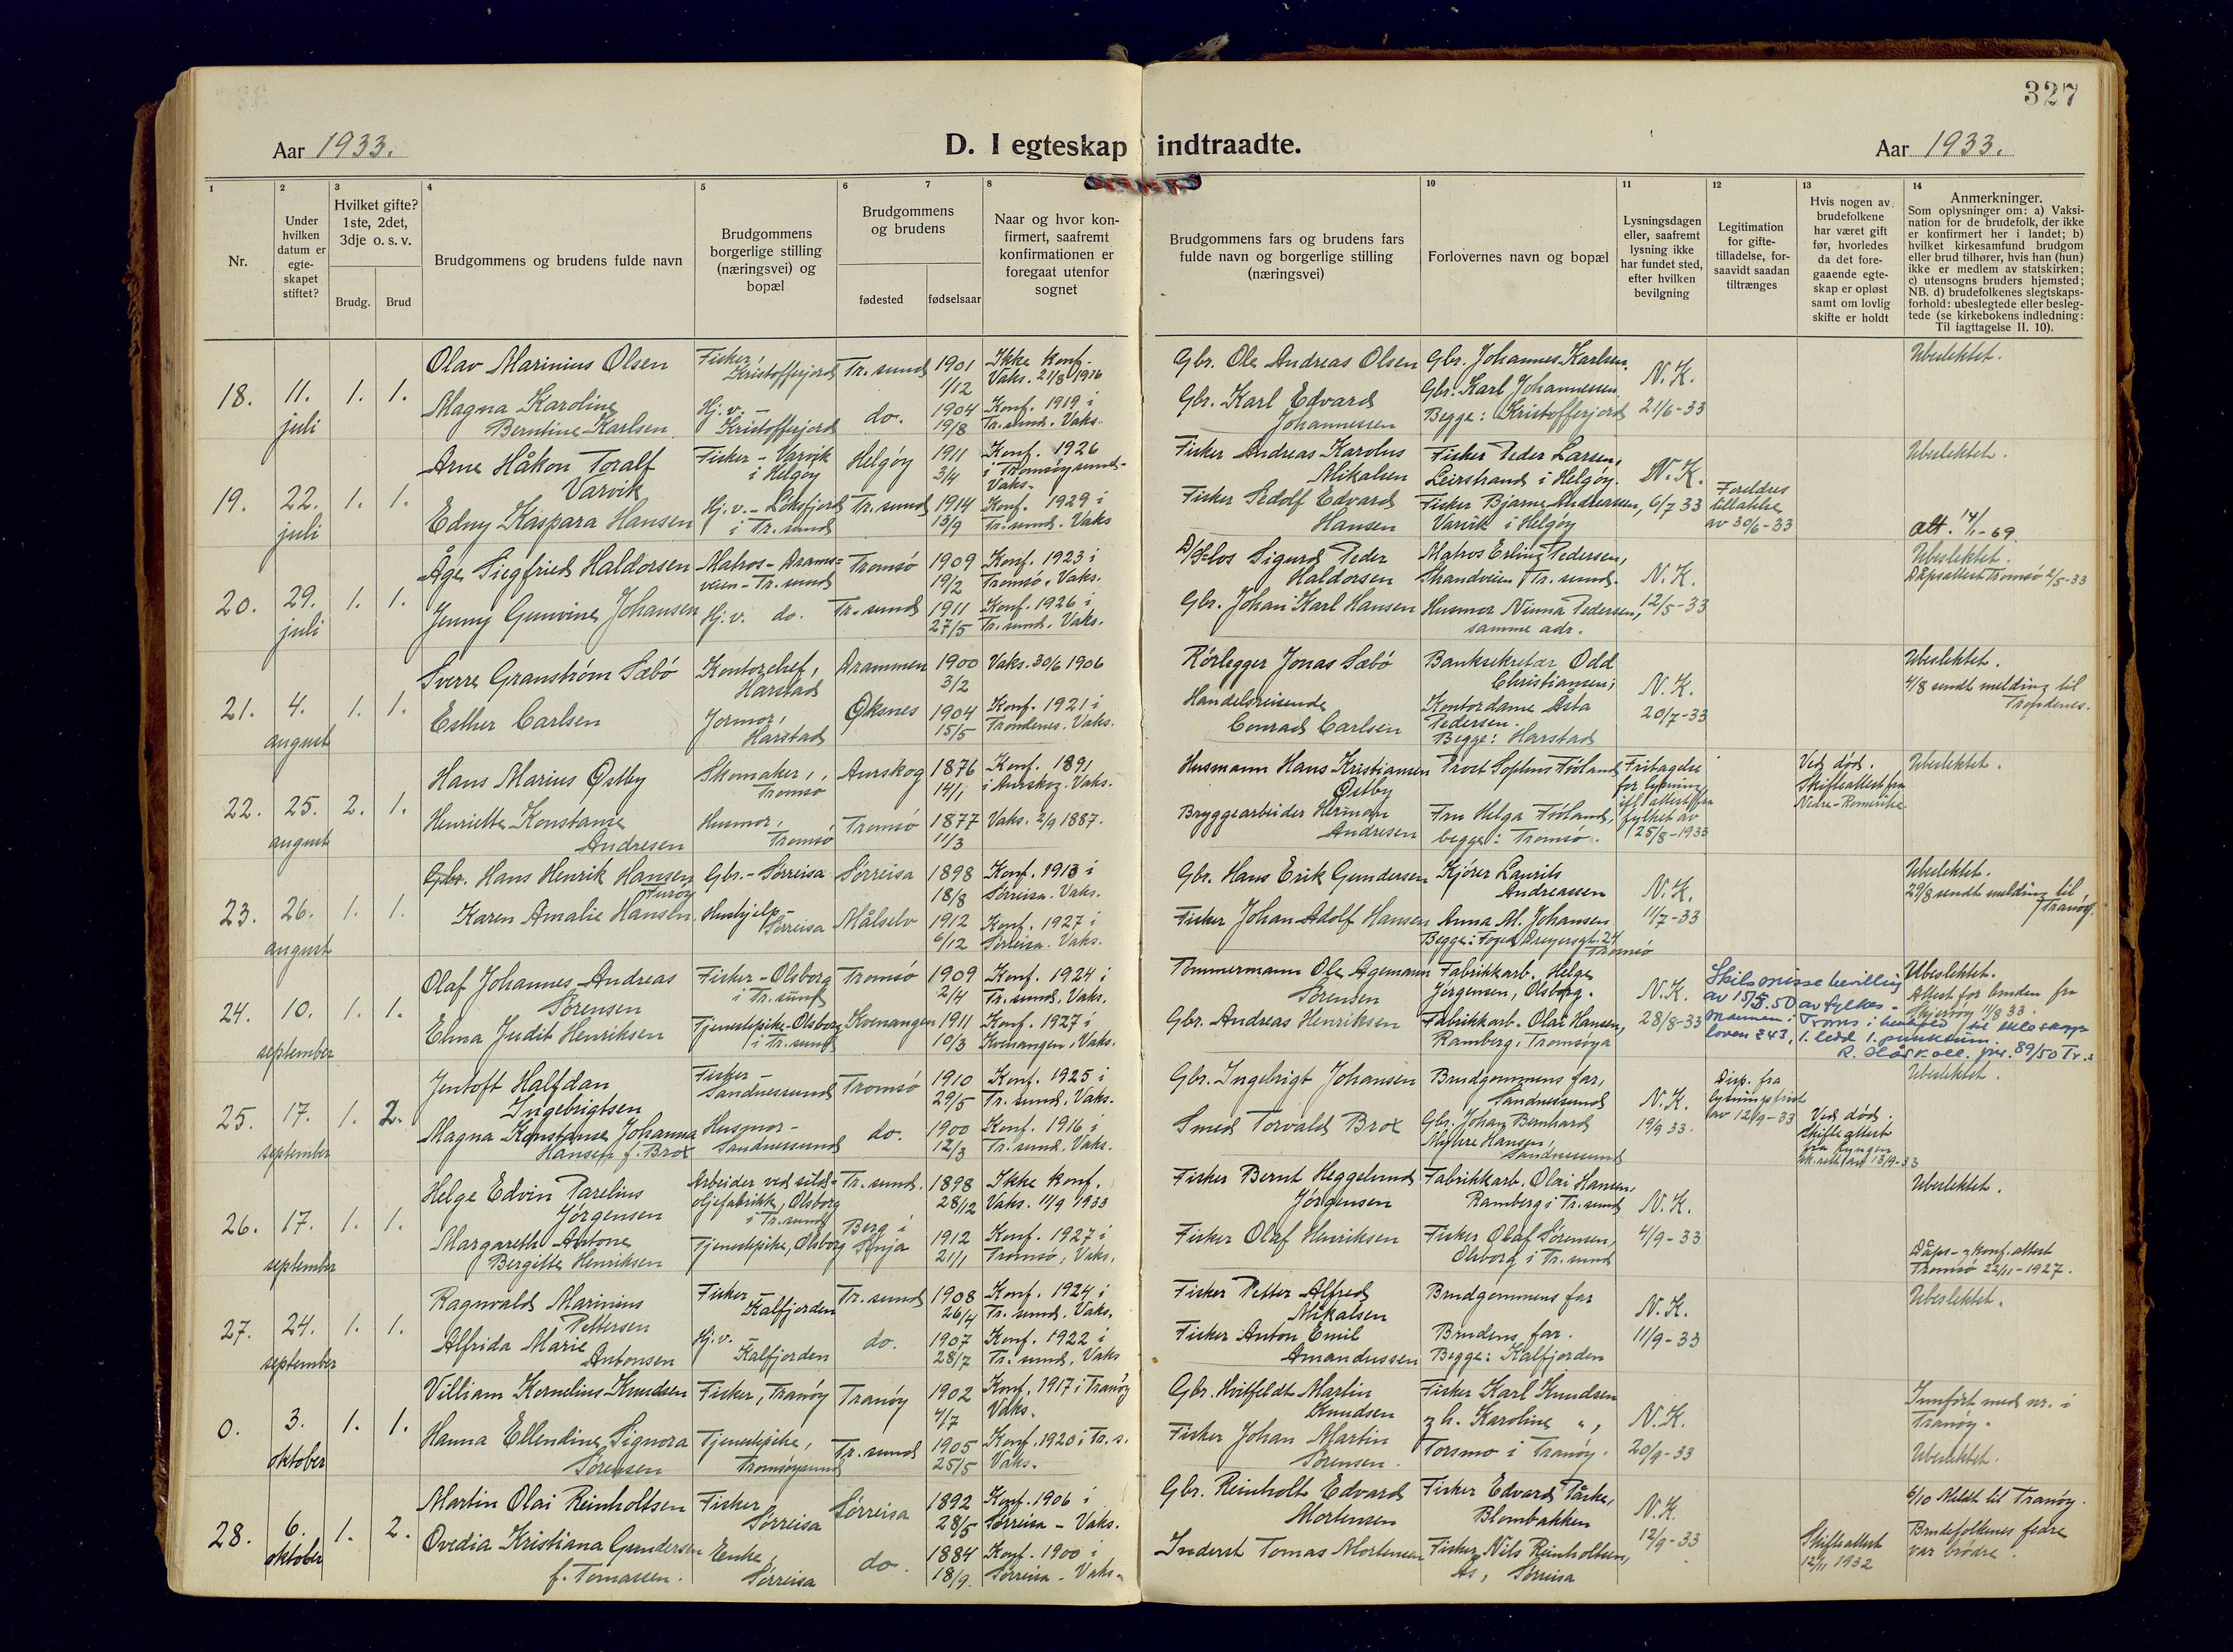 327
Aar 1933.
D. I egteskap indtraadte.
Aar 1933.
1
2
3
4
5
6
7
8
10
11
12
13
14
Nr.
Under hvilken datum er egte-skapet stiftet?
Hvilket gifte? 1ste, 2det, 3dje o. s. v.
Brudg.
Brud
Brudgommens og brudens fulde navn
Brudgommens borgerlige stilling (næringsvei) og bopæl
Brudgommens og brudens
fødested
fødselsaar
Naar og hvor kon-firmert, saafremt konfirmationen er foregaat utenfor sognet
Brudgommens fars og brudens fars fulde navn og borgerlige stilling (næringsvei)
Forlovernes navn og bopæl
Lysningsdagen eller, saafremt lysning ikke har fundet sted, efter hvilken bevilgning
Legitimation for gifte-tilladelse, for-saavidt saadan tiltrænges
Hvis nogen av brudefolkene har været gift før, hvorledes da det fore-gaaende egte-skap er opløst samt om lovlig skifte er holdt
Anmerkninger.
Som oplysninger om: a) Vaksi-nation for de brudefolk, der ikke er konfirmert her i landet; b) hvilket kirkesamfund brudgom eller brud tilhører, hvis han (hun) ikke er medlem av statskirken; c) utensogns bruders hjemsted; NB. d) brudefolkenes slegtskaps-forhold: ubeslegtede eller besleg-tede (se kirkebokens indledning: Til iagttagelse II. 10).
18.
11. juli
1.
1.
Olav Marinius Olsen
Fisker, Kristofferjord
Tr. sund
1901 1/12
Ikke konf. Vaks. 21/8 1916
Gbr. Ole Andreas Olsen
Gbr. Johannes Karlsen.
N. K.
21/6-33
Ubeslektet.
Magna Karoline
Berntine Karlsen
Hj. v. - Kristofferjord
do.
1904 19/8
Konf. 1919 i Tr. sund. Vaks.
Gbr. Karl Edvard Johannessen
Gbr. Karl Johannessen
Begge: Kristofferjord
19.
22. juli
1.
1.
Arne Håkon Toralf
Varvik
Fisker - Varvik i Helgøy
Helgøy
1911 3/4
Konf. 1926 i Tromsøysund - Vaks.
Fisker Andreas Karolus Mikalsen
Fisker Peder Larsen, Leirstrand i Helgøy.
N. K.
6/7 33
Foreldres tillatelse av 30/6-33
Ubeslektet.
Edny Kaspara Hansen
Hj. v. - Løksfjord i Tr. sund
Tr. sund
1914 13/9
Konf. 1929 i Tr. sund. Vaks
Fisker Sedolf Edvard Hansen
Fisker Bjarne Andreassen, Varvik i Helgøy
att. 14/1-69
20.
29. juli
1.
1.
Åge Siegfried Haldorsen
Matros - Drams-veien - Tr. sund
Tromsø
1909 19/2
Konf. 1923 i Tromsø. Vaks.
Sigurd Peder Haldorsen
Matros Erling Pedersen, Strandveien i Tr. sund.
N. K.
12/5-33
Ubeslektet.
Dåpsattest Tromsø 2/5-33
Jenny Gunvine Johansen
Hj. v. do.
Tr. sund
1911 27/5
Konf. 1926 i Tr. sund. Vaks.
Gbr. Johan Karl Hansen
Husmor Ninna Pedersen, samme adr.
21.
4. august
1.
1.
Sverre Granstrøm Sæbø
Kontorchef, Harstad
Drammen
1900 3/2
Vaks. 30/6 1906
Rørlegger Jonas Sæbø
Banksekretær Odd Christiansen;
N. K.
20/7-33
Ubeslektet.
4/8 sendt melding til Trondenes.
Esther Carlsen
Jormor, Harstad
Øksnes
1904 15/5
Konf. 1921 i Trondenes. Vaks.
Handelsreisende Conrad Carlsen
Kontordame Asta Pedersen.
Begge: Harstad
22.
25. august
2.
1.
Hans Marius Østby
Skomaker, Tromsø
Aurskog
1876 14/1
Konf. 1891 i Aurskog. Vaks.
Husmann Hans Kristiansen Østby
Provst Sophus Fööland
Fritagelse for lysning ifl. attest fra fylket av 25/8-1933
Ved død. Skifteattest fra Nedre-Romerike
Ubeslektet.
Henriette Konstanse
Andresen
Husmor, Tromsø
Tromsø
1877 11/3
Vaks. 2/9 1887.
Bryggearbeider Herman Andresen
Fru Helga Fööland, begge: Tromsø.
23.
26. august
1.
1.
Gbr. Hans Henrik Hansen
Furøy
Gbr. - Sørreisa
Sørreisa
1898 18/8
Konf. 1913 i Sørreisa. Vaks.
Gbr. Hans Erik Gundersen
Kjører Laurits Andreassen
N. K.
11/7-33
Ubeslektet.
29/8 sendt melding til Tranøy.
Karen Amalie Hansen
Hushjelp - Sørreisa
Målselv
1912 6/12
Konf. 1927 i Sørreisa. Vaks.
Fisker Johan Adolf Hansen
Anna M. Johansen
Begge: Foged Dreyersgt. 24 Tromsø
24.
10. september
1.
1.
Olaf Johannes Andreas
Sørensen
Fisker - Olsborg i Tr. sund
Tromsø
1909 2/4
Konf. 1924 i Tr. sund. Vaks.
Tømmermann Ole Agemann Sørensen
Fabrikkarb. Helge Jørgensen, Olsborg.
N. K.
28/8-33
Skilsmisse bevilling av 15/5.50 av fylkes-mannen i Troms i henhold til ekteskaps loven § 43, 1. ledd 1. punktum.
jnr. 89/50 Tr.s
Ubeslektet.
Attest for bruden fra Skjervøy 11/8 33.
Elma Judit Henriksen
Tjenestepike - Olsborg i Tr. sund
Kvenangen
1911 10/3
Konf. 1927 i Kvenangen. Vaks.
Gbr. Andreas Henriksen
Fabrikkarb. Olai Hansen, Ramberg, Tromsøya
25.
17. september
1.
2.
Jentoft Halfdan
Ingebrigtsen
Fisker - Sandnessund
Tromsø
1910 29/5
Konf. 1925 i Tr. sund. Vaks.
Gbr. Ingebrigt Johansen
Brudgommens far, Sandnessund
N. K.
19/9 33.
Disp. fra lysningsfrist av 12/9-33
Ved død. Skifteattest fra Lyngen 13/9-33
Ubeslektet.
Magna Konstanse Johanna
Hansen f. Brox
Husmor - Sandnessund
do.
1900 12/3
Konf. 1916 i Tr. sund. Vaks.
Smed Torvald Brox
Gbr. Johan Bernhard Myhre Hansen, Sandnessund
26.
17. september
1.
1.
Helge Edvin Parelius
Jørgensen
Arbeider ved silde-oljefabrikk, Olsborg i Tr. sund
Tr. sund.
1898 28/12
Ikke konf. Vaks. 11/9 1933
Fisker Bernt Heggelund Jørgensen
Fabrikkarb. Olai Hansen, Ramberg i Tr. sund
N. K.
4/9-33
Ubeslektet.
Margareth Antone
Bergitte Henriksen
Tjenestepike, Olsborg
Berg i Senja
1912 21/1
Konf. 1927 i Tromsø, Vaks.
Fisker Olaf Henriksen
Fisker Olaf Sørensen, Olsborg i Tr. sund
Dåps- og konf. attest Tromsø 22/11-1927.
27.
24. september
1.
1.
Ragnvald Marinius
Pettersen
Fisker - Kalfjorden
Tr. sund
1908 26/4
Konf. 1924 i Tr. sund. Vaks.
Fisker Petter Alfred Mikalsen
Brudgommens far
N. K.
11/9-33
Ubeslektet.
Alfrida Marie
Antonsen
Hj. v. - Kalfjorden
do.
1907 28/7
Konf. 1922 i Tr. sund, Vaks
Fisker Anton Emil Amandussen
Brudens far.
Begge: Kalfjorden
0.
3. oktober
1.
1.
Villiam Kornelius Knudsen
Fisker, Tranøy
Tranøy
1902 4/7
Konf. 1917 i Tranøy Vaks.
Gbr. Hvitfeldt Martin Knudsen
Fisker Karl Knudsen og h. Karoline " , Torsmo i Tranøy.
N. K.
20/9-33
Innført med nr. i Tranøy.
Ubeslektet.
Hanna Ellendine Signora
Sørensen
Tjenestepike, Tromsøysund
Tr. sund
1905 25/5
Konf. 1920 i Tr. s. Vaks.
Fisker Johan Martin Sørensen.
28.
6. oktober
1.
2.
Martin Olai Reinholtsen
Fisker, Sørreisa
Sørreisa
1892 28/5
Konf. 1906 i Sørreisa - Vaks.
Gbr. Reinholt Edvard Mortensen
Fisker Edvard Påske, Blombakken
N. K.
12/9-33
6/10 Meldt til Tranøy.
Ovedia Kristiana Gundersen
f. Tomassen.
Enke, Sørreisa
do.
1884 18/9.
Konf. 1900 i Sørreisa - Vaks.
Inderst Tomas Mortensen
Fisker Nils Reinholtsen, Ås, Sørreisa
Skifteattest 12/11 1932
Brudefolkenes fedre var brødre.